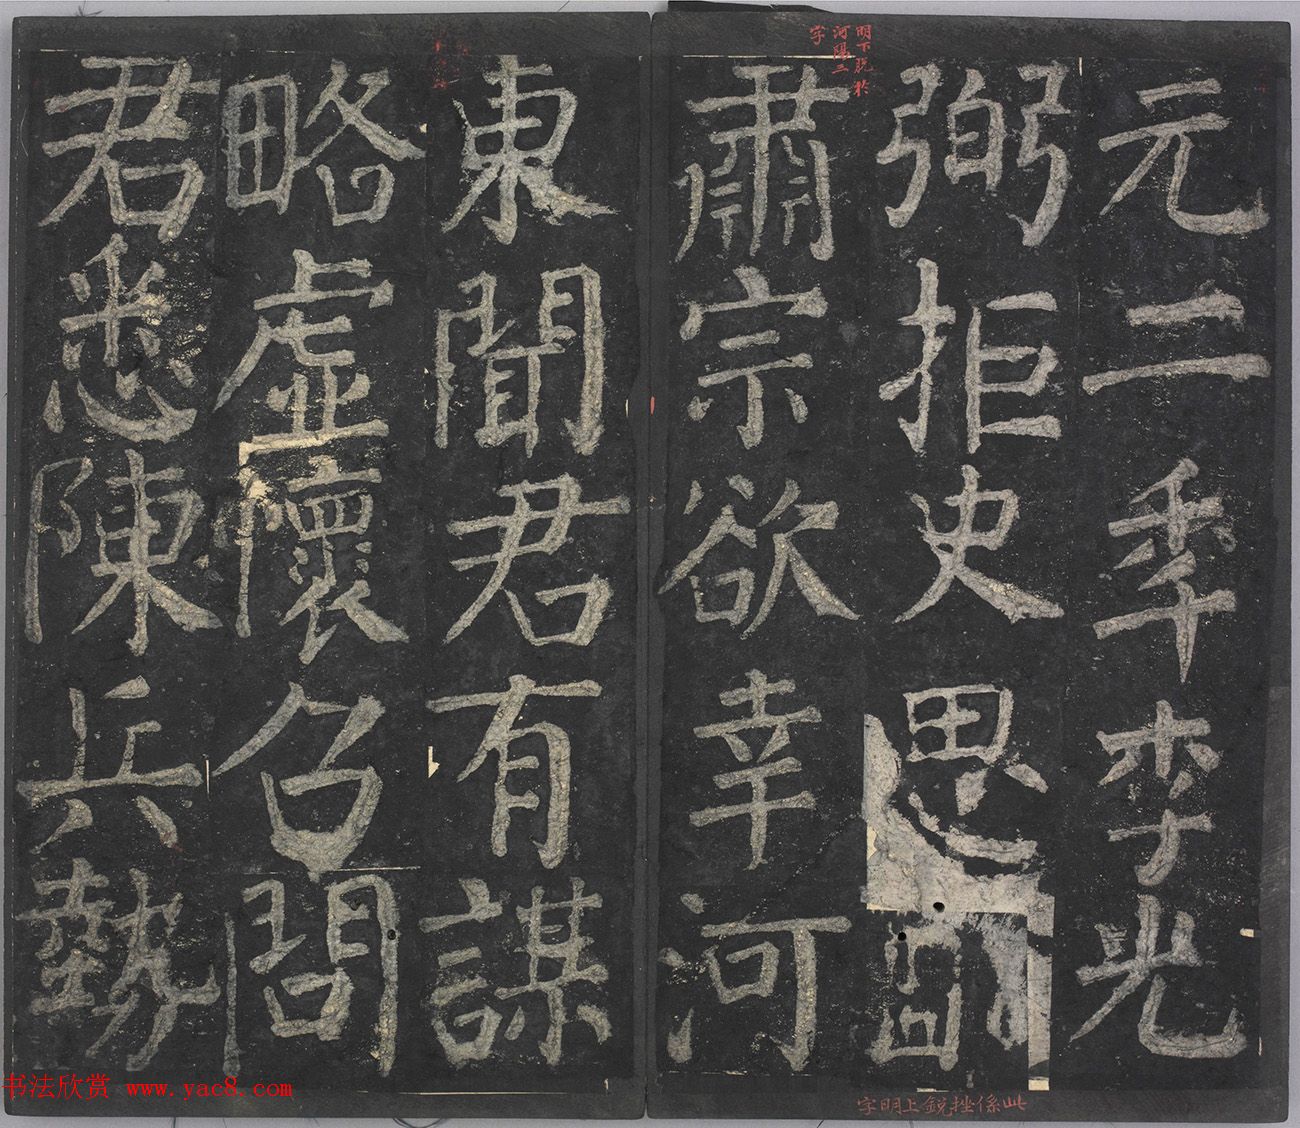 元二季李光
弼拒史思明
肅宗欲幸河
東聞君有謀
略虛懷召問
君悉陳兵勢
明下脫於
河陽二
字
此係挫銳上明字
书法欣赏 www.yac8.com